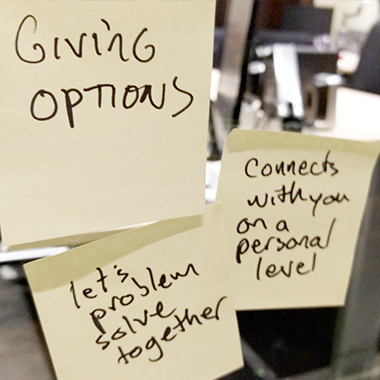 GiViNG
OPTIONS
Connects
with you
on a
personal
level
let's
problem
solve
together